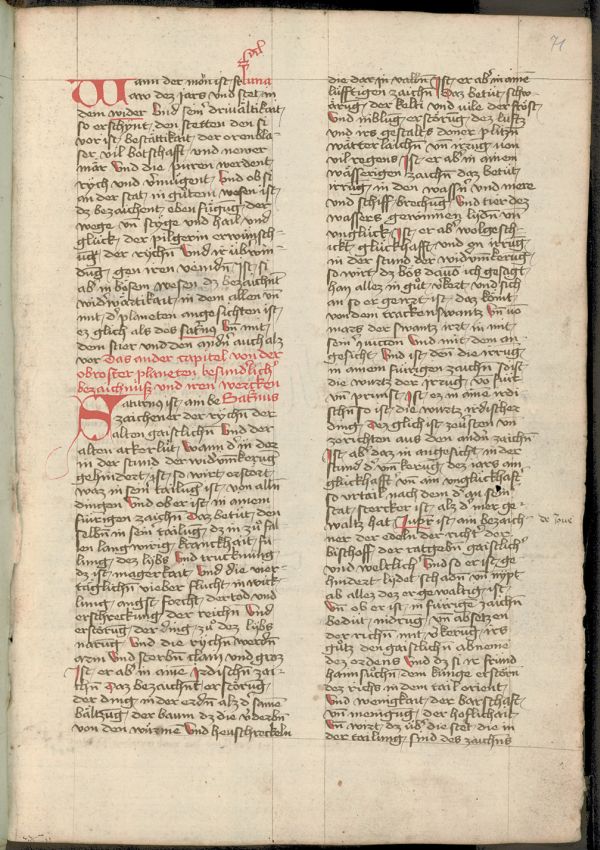 71
Wann der mon ist
dem wider Vnd sein driualtikait
so erschynt den stetten den si
vor ist bestättikait der orenbla-
ser vil botschafft vnd newer
mär Vnd die huren werdent
rych vnd vermugent Vnd ob si
an der stat in gutem wesen ist
dz bezaichent eben fugug der
wege vñ styge vnd hail vnd
glück der pilgerin erwünsch-
ug der rychñ Vnd ir übwin-
dug gen iren veindñ Ist si
ab in bösem wesen dz bezaichnt
widwärtikait in dem allen vñ
mit d planeten angesichten ist
ez glich als des satn9 Vñ mit
dem stier vnd den andñ auch alz
vor Das ander capitel von der
obroster planeten besundlich
bezaichnüß vnd iren wercken
Saturnus ist am be Satn9
zaichener der rychñ der
alten gaistlichñ Vnd der
alten ackerlüt Wann d in der
in der stund der widvmkerug
gehindert ist so wirt erstört
waz in sein tailug ist von alln
dingen Vnd ob er ist in ainem
fürigen zaichñ Daz betüt den
selbñ in sein tailug dz in zu fal
en langwirig kranckhait fu-
lung dez lybs Vnd trucknung
dz ist magerkait Vnd die vier-
täglichñ vieber flucht in wick-
lung angst forcht der tod vnd
erschreckung der reichñ Vnd
erstörug der ding zu dez lybs
narug Vnd die rychñ werdñ
arm Vnd sterbñ clain vnd groz
Ist er ab in aine Irdischñ zai-
chñ Daz bezaichnt erstörug
der ding in der erdñ alz d same
der baum dz die vderbñ
von den würme Vnd heuschreckeln
die dar in valln Ist er ab in aine
lüfftigen zaichñ Daz betüt schw
ärug der kelti vnd vile der fröst
Vnd erstörug dez luftz
vnd irs gestalts doner plitzñ
wätterlaichñ vñ irrug von
vil regens Ist er ab in ainem
wässerigen zaichñ daz betüt
irrug in den wassñ vnd mere
vnd schiff brechug Vnd tier dez
wassers gewinnen lydñ vñ
vnglück Ist er ab wolgesch-
ickt glückhafft vnd on irrug
in der stund der widvmkerug
so wirt dz bös dauo ich gesagt
han allez in gut vkert vnd sich
an so er genczt ist daz kömt
von dem trackenswantz Vñ vo
mars der swantz irzt in mit
sein quicion Vnd mit dem an
gesicht Vnd ist den die irrug
in ainem fürrigen zaichñ so ist
die wurtz der irrug vo fürt
vñ prunst Ist ez in aine irdi
schñ so ist die wurtz irdischer
ding Dez glich ist ze vsten vñ
ze richten aus den andñ zaichñ
Ist ab daz in angesicht in der
stund d vm kerug dez jars ain
glückhafft vñ ain vnglückhaft
so vrtail nach dem d an sein
stat stercker ist alz d mer ge-
waltz hat Jupit ist ain bezaich-
ner der edeln der richt der
bischoff der ratgebñ gaistlich
vnd weltlich Vnd so er ist ge
hindert lydet schadñ vñ nympt
ab allez dez er gewaltig ist
Vñ ob er ist in fürrige zaichñ
bedüt nidrug vñ absetzen
der richñ mit vkerug irs
gutz den gaistlichñ abneme
dez ordens Vnd dz si ir fründ
haimsuchñ dem künge erstörñ
dez richs in dem tail orient
Vnd wenigkait der barschaft
vñ menigug der hoflichait
Vñ wirt dz üb die stet die in
der tailung sind des zaichñs
de Joue